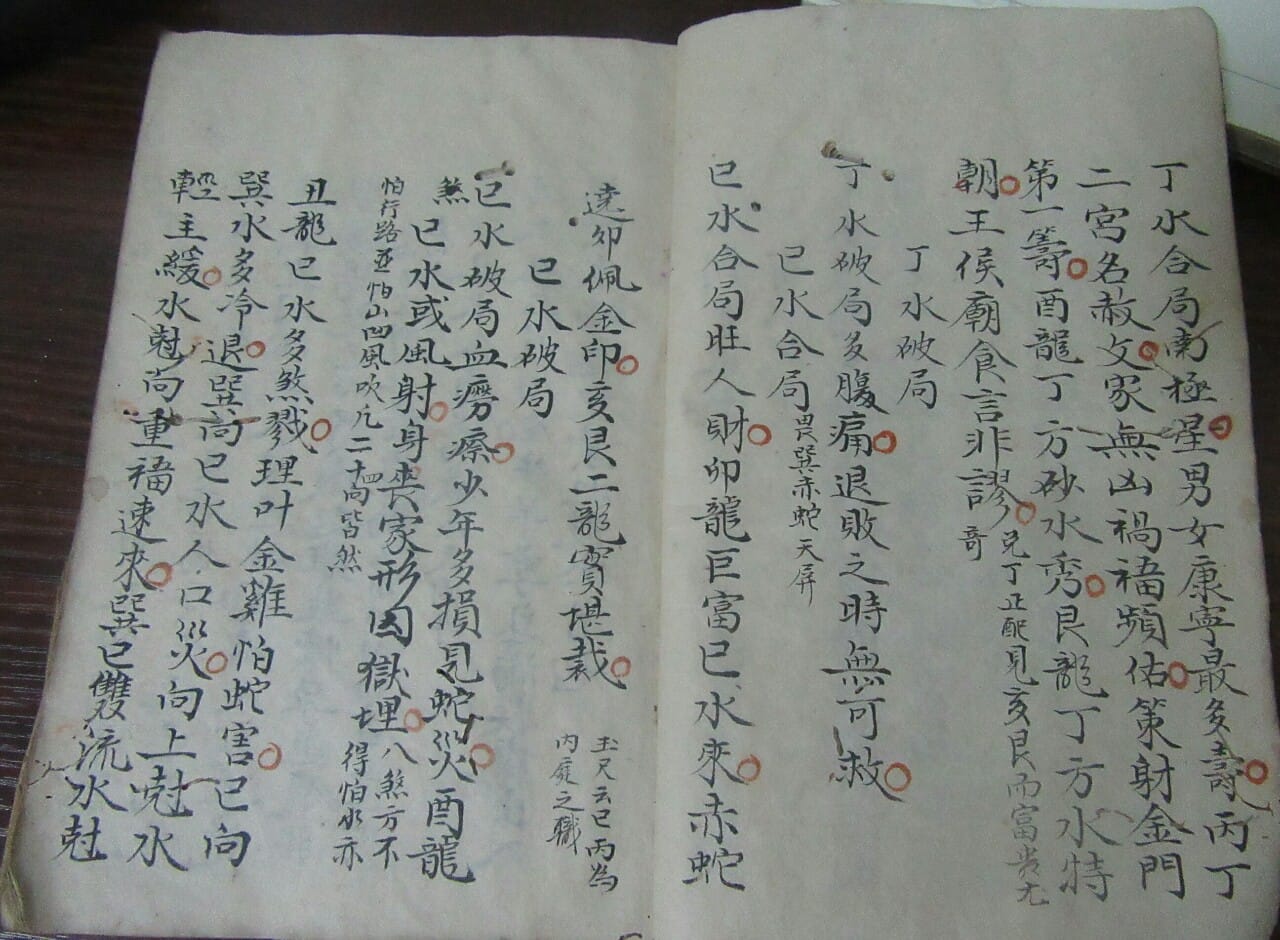 丁水合局南極星男女康寧最多壽丙丁
二宮名赦文家無凶禍福頻佑策射金門
第一籌酉龍丁方砂水秀艮龍丁方水特
朝王侯廟食言非謬兄丁正配見亥艮而富貴尤
奇
丁水破局
丁水破局多腹痛退敗之時無可救
巳水合局畏巽赤蛇天屏
巳水合局旺人財卯龍巨富巳水來赤蛇
遶卯佩金印亥艮二龍實堪裁玉尺云巳丙為
內庭之職
巳水破局
巳水破局血癆瘵少年多損見蛇災酉龍
煞巳水或風射身喪家形因獄埋八煞方不
得怕水亦
怕行路並怕山凹風吹凢二十四向皆然
丑龍巳水多煞戮理叶金雞怕蛇害巳向
巽水多冷退巽高巳水人口災向上尅水
輕主緩水尅向重福速來巽巳雙流水尅